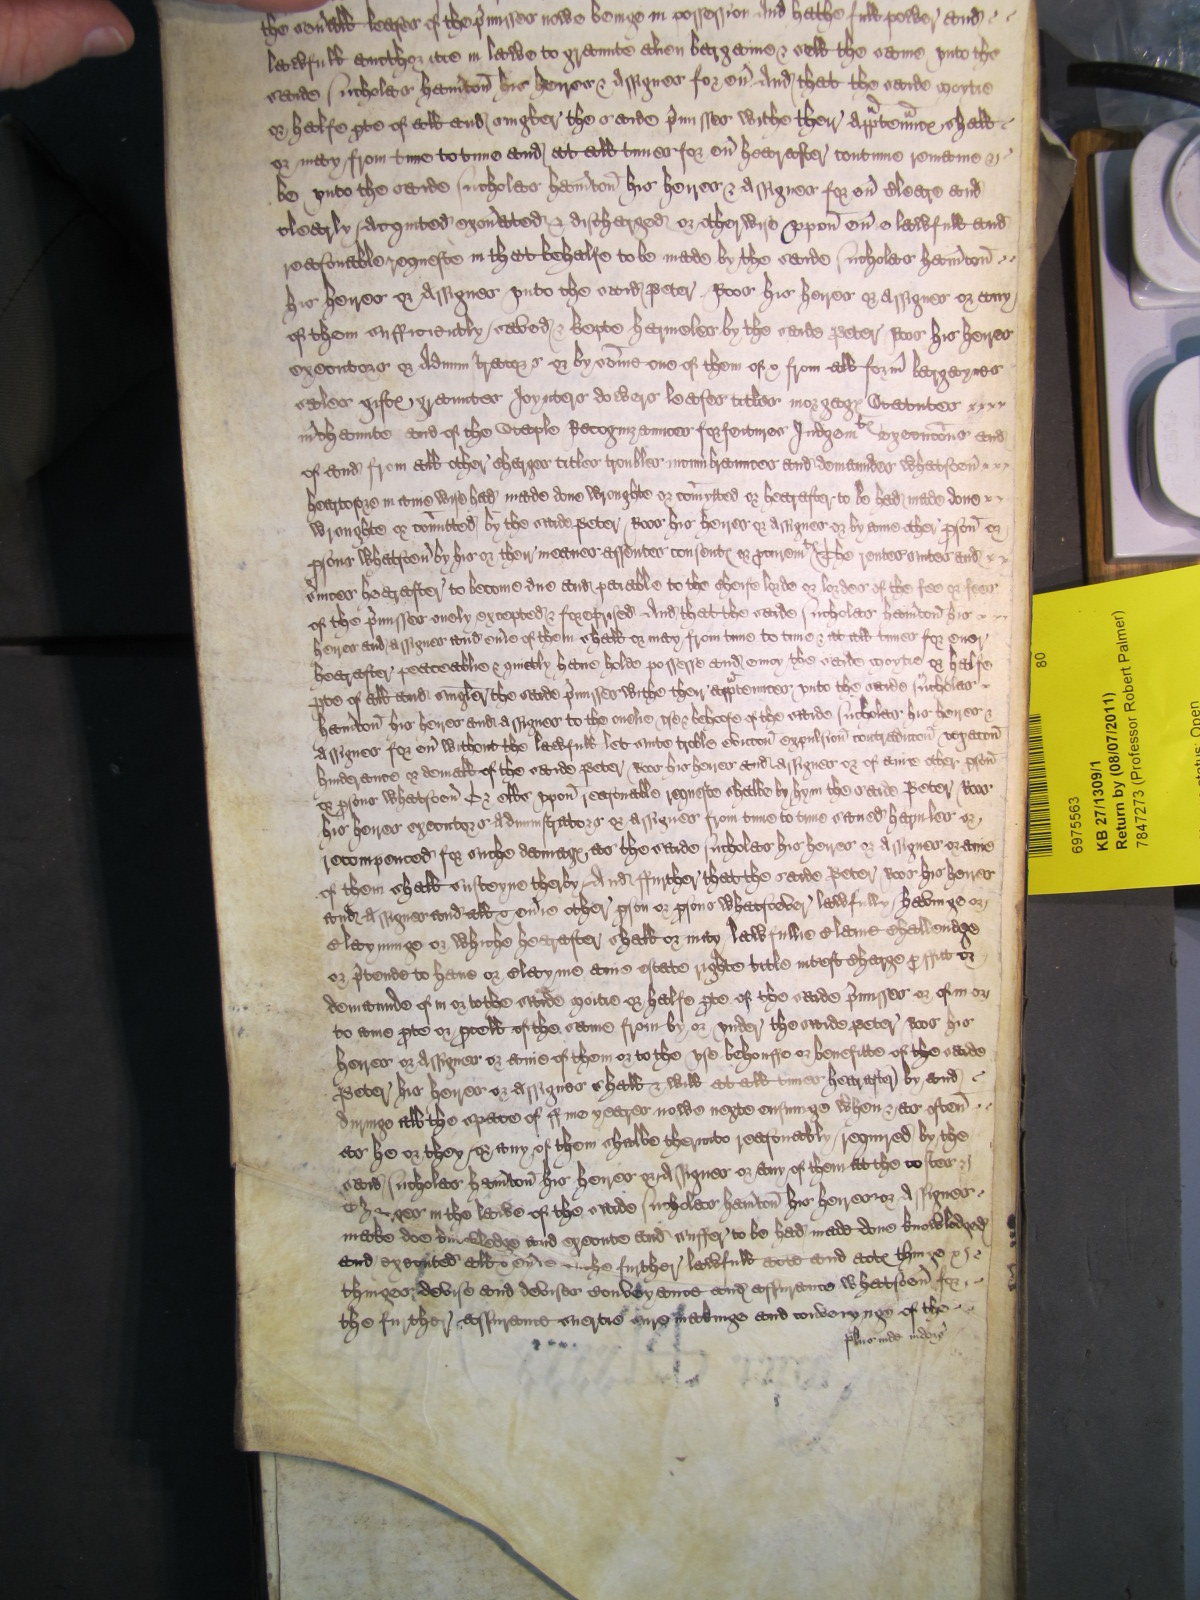 the sev'all leases of the p'misses nowe beinge in possession And hathe full power and
lawfull aucthoritie in lawe to graunte alien bargaine & sell the same unto the
saide Nicholas Hamton his heires & Assignes for ev' And that the saide moytie
or halfe p'te of all and singler the saide p'misses withe their Apptenncs shall
or may from time to time and at all times for ev' hearafter contynue remaine &
be unto the saide Nicholas Hamton his heires & Assignes for ev' cleare and
clearly Acquited exon'ated & discharged or otherwise uppon ev'e lawfull and
reasonable requeste in that behalfe to be made by the saide Nicholas Hamton
his heires or Assignes unto the said Peter Roos his heires or Assignes or any
of them sufficiently saved & kepte harmeles by the saide Peter Roos his heires
executors or Administrators or by some one of them of & from all form' bargaynes
sales giftes grauntes Joynters dowers leases titles morgages Statutes
m'chaunte and of the Staple Recognizaunces forfeitures Judgem'tes execucons and
of and from all other charges titles troubles incumbraunces and demaundes whatsoev'
heartofore in anie wise had made done wroughte or comytted or hearafter to be had made done
wroughte or comitted by the saide Peter Roos his heires or Assignes or by anie other p'son or
p'sons whatsoev' by his or their meanes assentes consentes or procurem't The rentes suites and
s'vices hearafter to become due and paiable to the cheife lorde or lordes of the fee or fees
of the p'misses onely excepted & foreprised And that the saide Nicholas Hamton his
heires and assignes and ev'ie of them shall or may from time to time & at all times for ever
hearafter peaceablie & quietly have holde possesse and enioy the saide moytie or halfe
p'te of all and singler the saide p'misses withe their apptennces unto the saide Nicholas
Hamton his heires and assignes to the onelie use & behoofe of the saide Nicholas his heires &
Assignes for ev' without the lawfull let suite troble eviccon expulsion contradiccon vexacon
hinderance or deniall of the saide Peter Roos his heires and Assignes or of anie other p'son
or p'sons whatsoev' Or elles uppon reasonable requeste shalbe by hym the saide Peter Roos
his heires executors Administrators or assignes from time to time saved harmles or
recompenced for suche damages as the saide Nicholas his heires or Assignes or anie
of them shall susteyne therby And ffurther that the saide Peter Roos his heires
and Assignes and all & ev'ie other p'son or p'sons whatsoever lawfully havinge or
clayminge or whiche hearafter shall or may lawfullie claime challendge
or p'tende to have or clayme anie estate righte title int'est charge p'ffitt or
demaunde of in or to the saide moitie or halfe p'te of the saide p'misses or of in or
to anie p'te or p'cell of the same from by or under the saide Peter Roos his
heires or Assignes or anie of them or to the use behouffe or benefitte of the saide
Peter his heires or assignes shall & will at all times hearafter by and
duringe all the space of ffive yeares nowe nexte ensuinge when & as often
as he or they or any of them shalbe therunto reasonably required by the
said Nicholas Hamton his heires or Assignes or any of them at the costes &
in the lawe of the saide Nicholas Hamton his heires or Assignes
make doe knowledge and execute and suffer to be had made done knowledged
and executed all & ev'ie suche further lawfull acte and actes thinge &
thinges devise and devises conveyance and assurance whatsoev' for
the further assurance suertie sure makinge and conveyinge of the
plus inde indors'
6975563
KB 27/1309/1
Return by (08/07/2011)
7847273 (Professor Robert Palmer)
80
status: Open